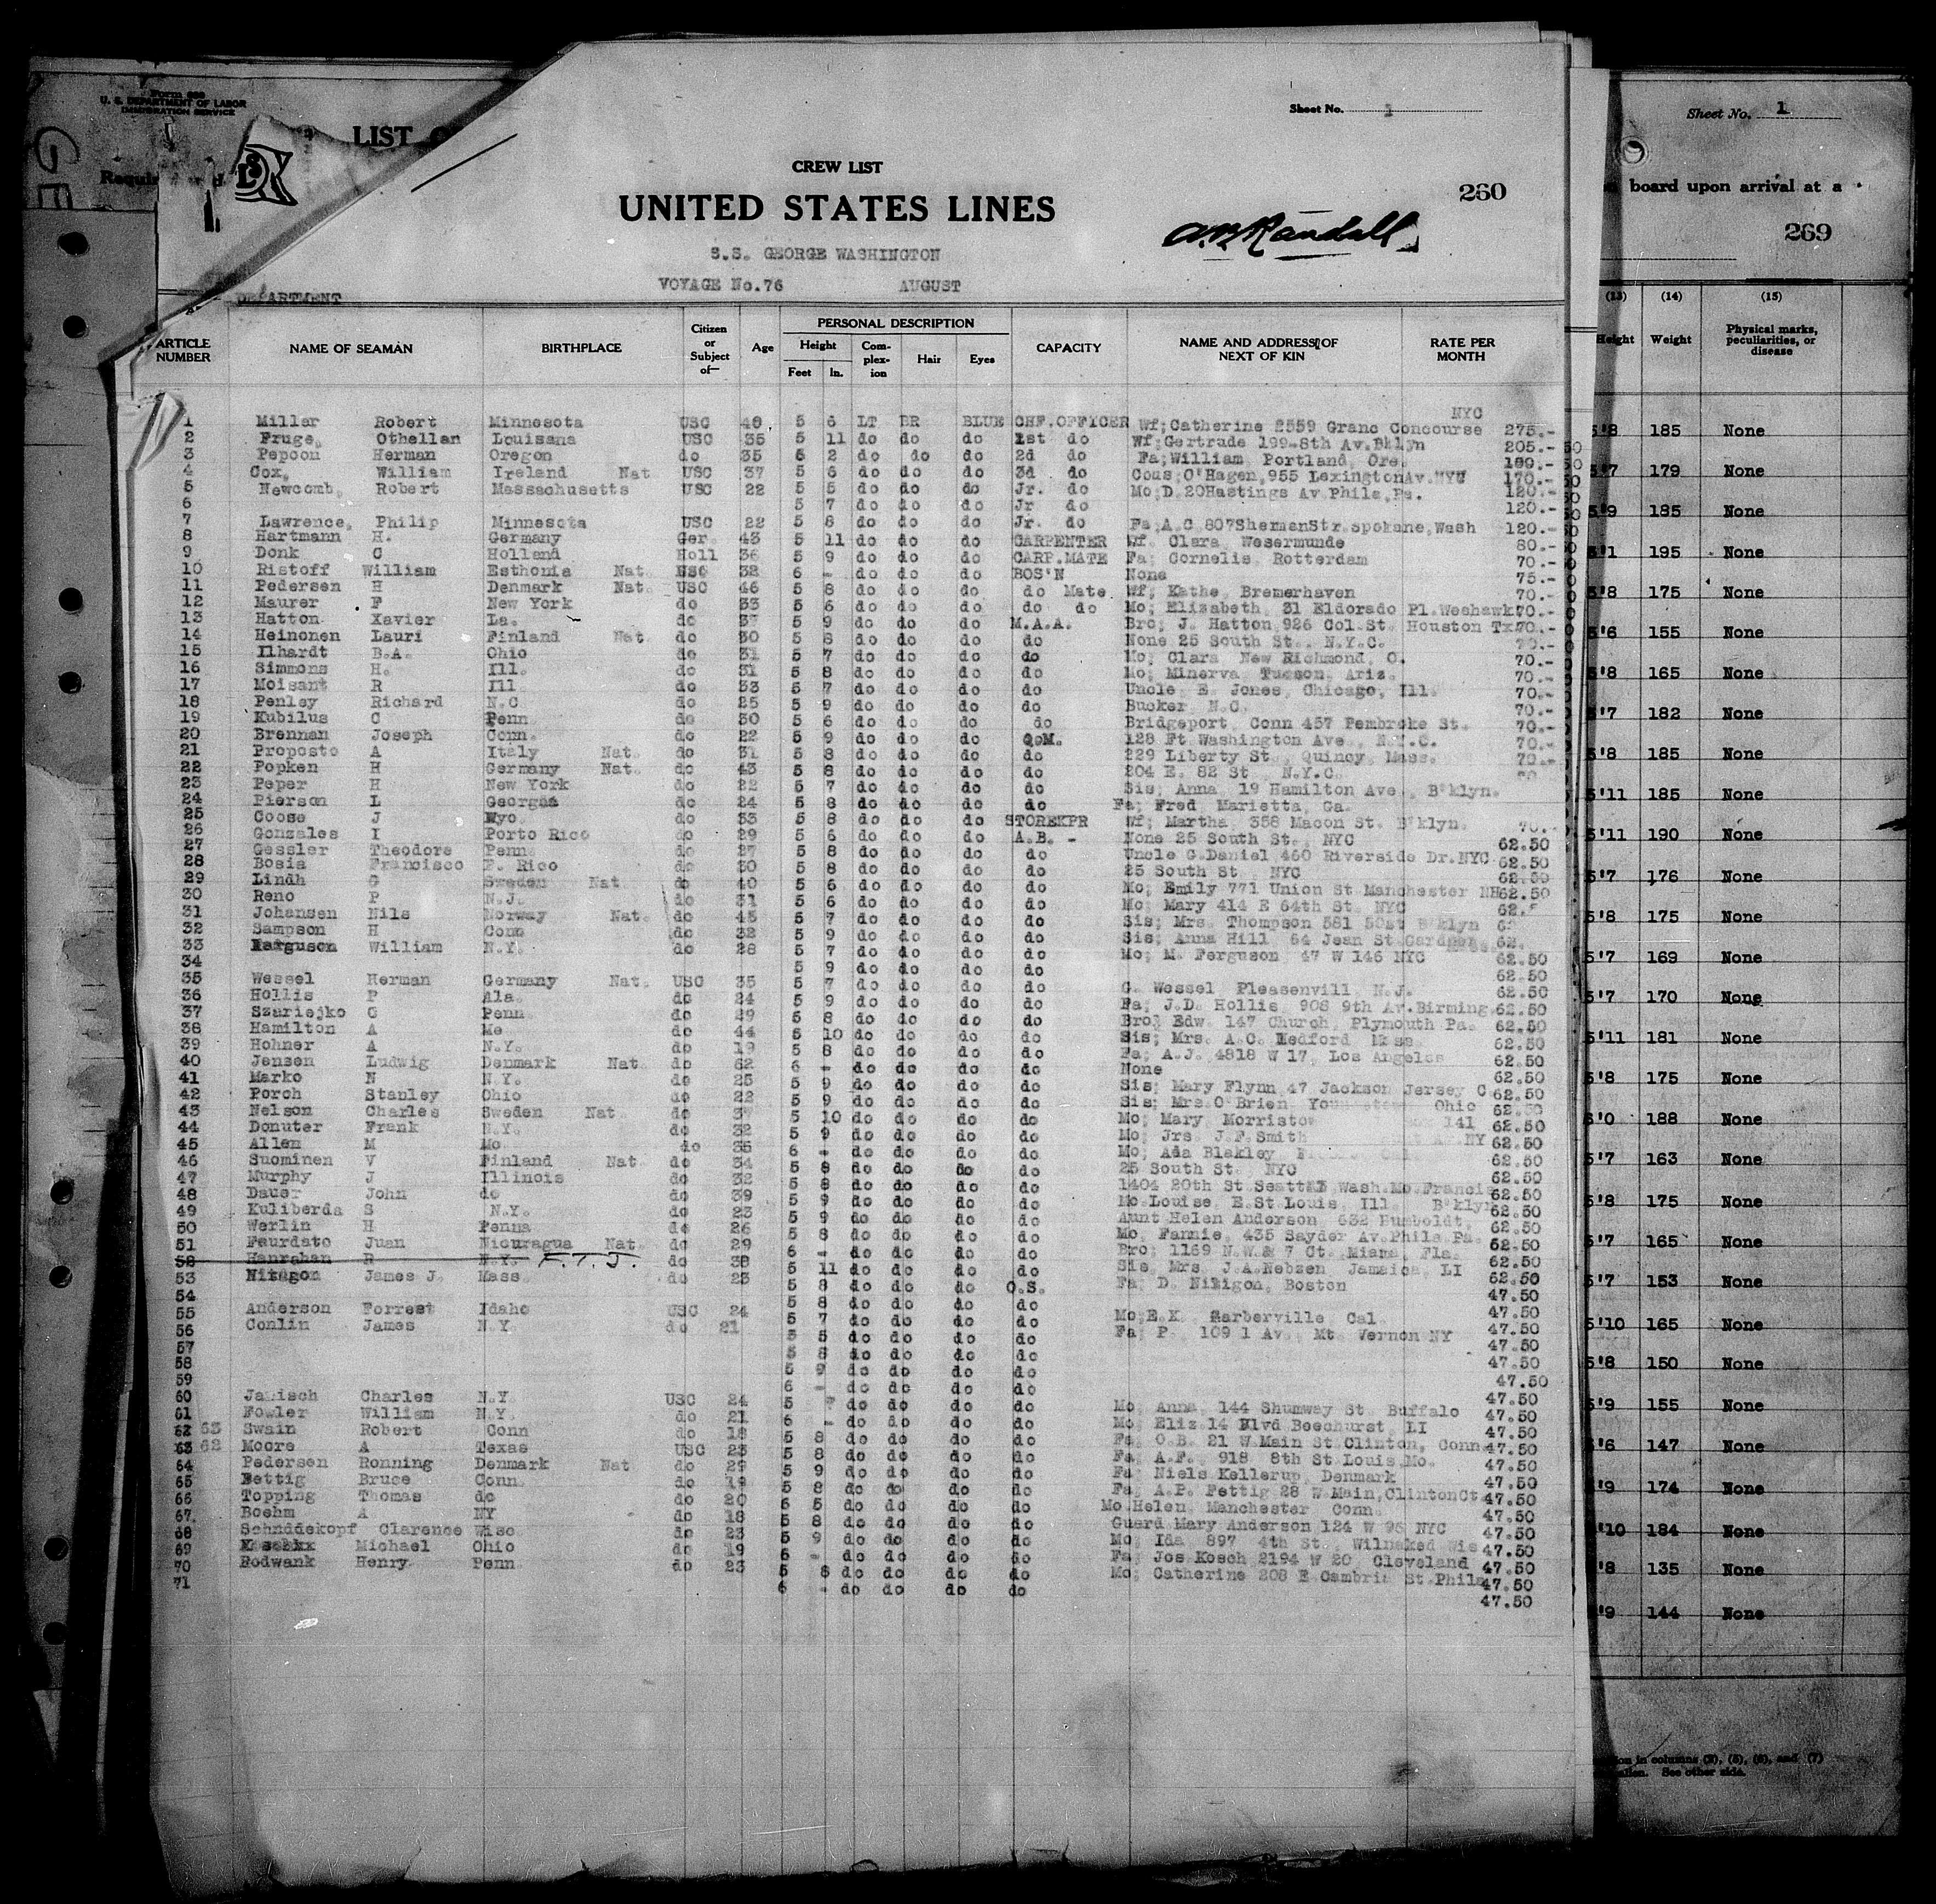 Form 689
U. S. DEPARTMENT OF LABOR
IMMIGRATION SERVICE
LIST
GE
Sheet No. 1
CREW LIST
UNITED STATES LINES
260
S.S. GEORGE WASHINGTON
VOYAGE No.76 AUGUST
A.B. Randall
DEPARTMENT
ARTICLE NUMBER NAME OF SEAMAN BIRTHPLACE Citizen or Subject of— Age PERSONAL DESCRIPTION Height Feet In. Complexion Hair Eyes CAPACITY NAME AND ADDRESS OF NEXT OF KIN RATE PER MONTH
NYC
1 Miller Robert Minnesota USC 5 6 LT BR BLUE CHF.OFFICER Wf;Catherine 2559 Granc Concourse 275.-
2 Fruge, Othellan Louisana USC 35 5 11 do do do 1st do Wf;Gertrade 199-8th Av.Bklyn 205.-
3 Pepcom Herman Oregon do 35 5 2 do do do 2d do Fa;William Portland, Ore.
4 Cox, William Ireland Nat USC 37 5 6 do do do 3d do Cous;O'Hagen,955 LexingtonAv.NYC 170.-
5 Newcomb, Robert Massachusetts USC 22 5 5 do do do Jr. do Mo;D 20Hastings Av Phila,Pa. 120.-
6 5 7 do do do Jr do 120.-
7 Lawrence, Philip Minnesota USC 22 5 8 do do do Jr. do Fa;A.C 807ShermanStr.Spokane,Wash 120.-
8 Hartmann H. Germany Ger. 43 5 11 do do do CARPENTER Wf. Clara Wesermunde 80.-
9 Donk C Holland Holl 36 5 9 do do do CARP.MATE Fa; Cornelis, Rotterdam 70.-
10 Ristoff William Esthonia Nat. USC 32 6 - do do do BOS'N None 75.-
11 Pedersen H Denmark Nat. USC 46 5 8 do do do do Mate Wf; Kathe, Bremerhaven 70.-
12 Maurer F New York do 33 5 6 do do do do do Mo; Elizabeth 31 Eldorado Pl.Weehawk 70.-
13 Hatton Xavier La. do 37 5 9 do do do M.A.A. Bro; J. Hatton 926 Col.St. Houston Tx 70.-
14 Heinonen Lauri Finland Nat. do 30 5 8 do do do do None 25 South St., N.Y.C. 70.-
15 Ilhardt B.A. Ohio do 31 5 7 do do do do Mo; Clara New Richmond, O. 70.-
16 Simmons H. Ill. do 31 5 8 do do do do Mo; Minerva Tucson, Ariz. 70.-
17 Moisant R Ill do 33 5 7 do do do do Uncle E. Jones, Chicago, Ill. 70.-
18 Penley Richard N.C do 25 5 9 do do do do Bucker N.C. 70.-
19 Kubilus C Penn do 30 5 6 do do do do Bridgeport, Conn 457 Pembroke St. 70.-
20 Brennan Joseph Conn. do 22 5 9 do do do Q.M. 128 Ft Washington Ave., N.Y.C. 70.-
21 Proposto A Italy Nat. do 31 5 8 do do do do 229 Liberty St., Quincy, Mass. 70.-
22 Popken H Germany Nat. do 43 5 8 do do do do 204 E. 82 St N.Y.C.
23 Peper H New York do 22 5 7 do do do do Sis; Anna, 19 Hamilton Ave., B'klyn.
24 Pierson L Georgaa do 24 5 8 do do do do Fa; Fred Marietta, Ga.
25 Coose J Wyo. do 33 5 8 do do do STOREKPR Wf; Martha, 358 Macon St. B'klyn. 70.-
26 Gonzales I Porto Rico do 29 5 6 do do do A.B. - None 25 South St., NYC 62.50
27 Gessler Theodore Penn. do 27 5 8 do do do do Uncle G.Daniel,460 Riverside Dr.NYC 62.50
28 Bosia Francisco P. Rico do 30 5 8 do do do do 25 South St NYC 62.50
29 Lindh G Sweden Nat do 40 5 6 do do do do Mo; Emily 771 Union St Manchester NH 62.50
30 Reno P N.J. do 31 5 6 do do do do Mo; Mary 414 E 64th St. NYC 62.
31 Johansen Nils Norway Nat. do 45 5 7 do do do do Sis; Mrs. Thompson 581 50st B'klyn
32 Sampson H Conn do 32 5 9 do do do do Sis; Anna Hill, 64 Jean St. 62.
33 Ferguson William N.Y. do 28 5 7 do do do do Mo; M. Ferguson, 47 W 146 NYC 62.50
34 5 9 do do do do 62.50
35 Wessel Herman Germany Nat. USC 35 5 7 do do do do G. Wessel Pleasenvill, N.J. 62.50
36 Hollis P Ala. do 24 5 9 do do do do Fa; J.D. Hollis 908 9th Av.Birming. 62.50
37 Szariejko G Penn do 29 5 8 do do do do Bro; Edw. 147 Church, Plymouth Pa. 62.50
38 Hamilton A Me do 44 5 10 do do do do Sis; Mrs. A.C. Medford Mass 62.50
39 Hohner A N.Y. do 19 5 8 do do do do Fa; A.J. 4818 W 17, Los Angeles 62.50
40 Jensen Ludwig Denmark Nat. do 62 6 - do do do do None 62.50
41 Marko N N.Y. do 25 5 9 do do do do Sis; Mary Flynn 47 Jackson Jersey C 62.50
42 Porch Stanley Ohio do 22 5 9 do do do do Sis; Mrs O'Brien Ohio 62.50
43 Nelson Charles Sweden Nat do 37 5 10 do do do do Mo; Mary Morristow 141 62.50
44 Donuter Frank N.Y. do 32 5 9 do do do do Mo; Jrs. J.F.Smith NY 62.50
45 Allen M Mo do 35 6 - do do do do Mo; Ada Blakley 62.50
46 Suominen V Finland Nat do 34 5 8 do do do do 25 South St. NYC 62.50
47 Murphy J Illinois do 32 5 8 do do do do 1404 20th St Wash.Mo.Francis 62.50
48 Dauer John do do 39 5 9 do do do do Mo Louise, E.St.Louis, Ill. 62.50
49 Kuliberda S N.Y. do 23 5 9 do do do do Aunt Helen Anderson 632 Humboldt, B'klyn 62.50
50 Werlin H Penna do 26 5 8 do do do do Mo, Fannie, 435 Sayder Av.Phila Pa. 62.50
51 Faurdato Juan Nicuragua Nat. do 29 6 - do do do do Bro; 1169 N.W. 7 Ct. Miama, Fla. 62.50
52 Hanrahan R N.Y. F.T.J. do 38 5 11 do do do do Sis, Mrs. J.A.Nebzen, Jamaica, LI 62.50
53 James J. Mass do 23 5 8 do do do O.S. Fa; D. Niligon, Boston 47.50
54 5 8 do do do do
55 Anderson Forrest Idaho USC 24 5 7 do do do do Mo;E.K. Garberville, Cal. 47.50
56 Conlin James N.Y. do 21 5 5 do do do do Fa; P. 109 1 Av. Mt. Vernon NY 47.50
57 5 8 do do do do 47.50
58 5 9 do do do do 47.50
59 6 - do do do do 47.50
60 Janisch Charles N.Y. USC 24 5 do do do do Mo; Anna, 144 Shumway St. Buffalo 47.50
61 Fowler William N.Y. do 21 6 - do do do do Mo; Eliz 14 Blvd Beechurst, LI 47.50
62 63 Swain Robert Conn do 18 5 8 do do do do Fa; O.B. 21 W.Main St.Clinton, Conn 47.50
63 62 Moore A Texas USC 23 5 8 do do do do Fa; A.F. 918 8th St Louis Mo. 47.50
64 Pedersen Ronning Denmark Nat do 29 5 9 do do do do Fa; Niels Kellerup, Denmark 47.50
65 Pettig Bruce Conn. do 19 5 8 do do do do Fa; A.P. Pettig 28 W.Main,ClintonCt. 47.50
66 Topping Thomas do do 20 6 5 do do do do Mo.Helen, Manchester Conn. 47.50
67 Boehm A NY do 18 5 8 do do do do Guard Mary Anderson 124 W 96 NYC 47.50
68 Schnddekopf Clarence Wisc do 23 5 9 do do do do Mo; Ida 897 4th St. Wilnaked Wis 47.50
69 Michael Ohio do 19 6 - do do do do Fa; Jos Kosch 2194 W 20, Cleveland 47.50
70 Rodwank Henry Penn do 23 5 8 do do do do Mo; Catherine 208 E Cambria St Phila 47.50
71 6 - do do do do 47.50
Sheet No. 1
board upon arrival at a
269
(13) (14) (15)
Height Weight Physical marks, peculiarities, or disease
5'8 185 None
5'7 179 None
5'9 185 None
5'1 195 None
5'8 175 None
5'6 155 None
5'8 165 None
5'7 182 None
5'8 185 None
5'11 185 None
5'11 190 None
5'7 176 None
5'8 175 None
5'7 169 None
5'7 170 None
5'11 181 None
5'8 175 None
6'0 188 None
5'7 163 None
5'8 175 None
5'7 165 None
5'7 153 None
5'10 165 None
5'8 150 None
5'9 155 None
5'6 147 None
5'9 174 None
'10 184 None
'8 135 None
'9 144 None
in columns (2), (5), (6), and (7)
See other side.